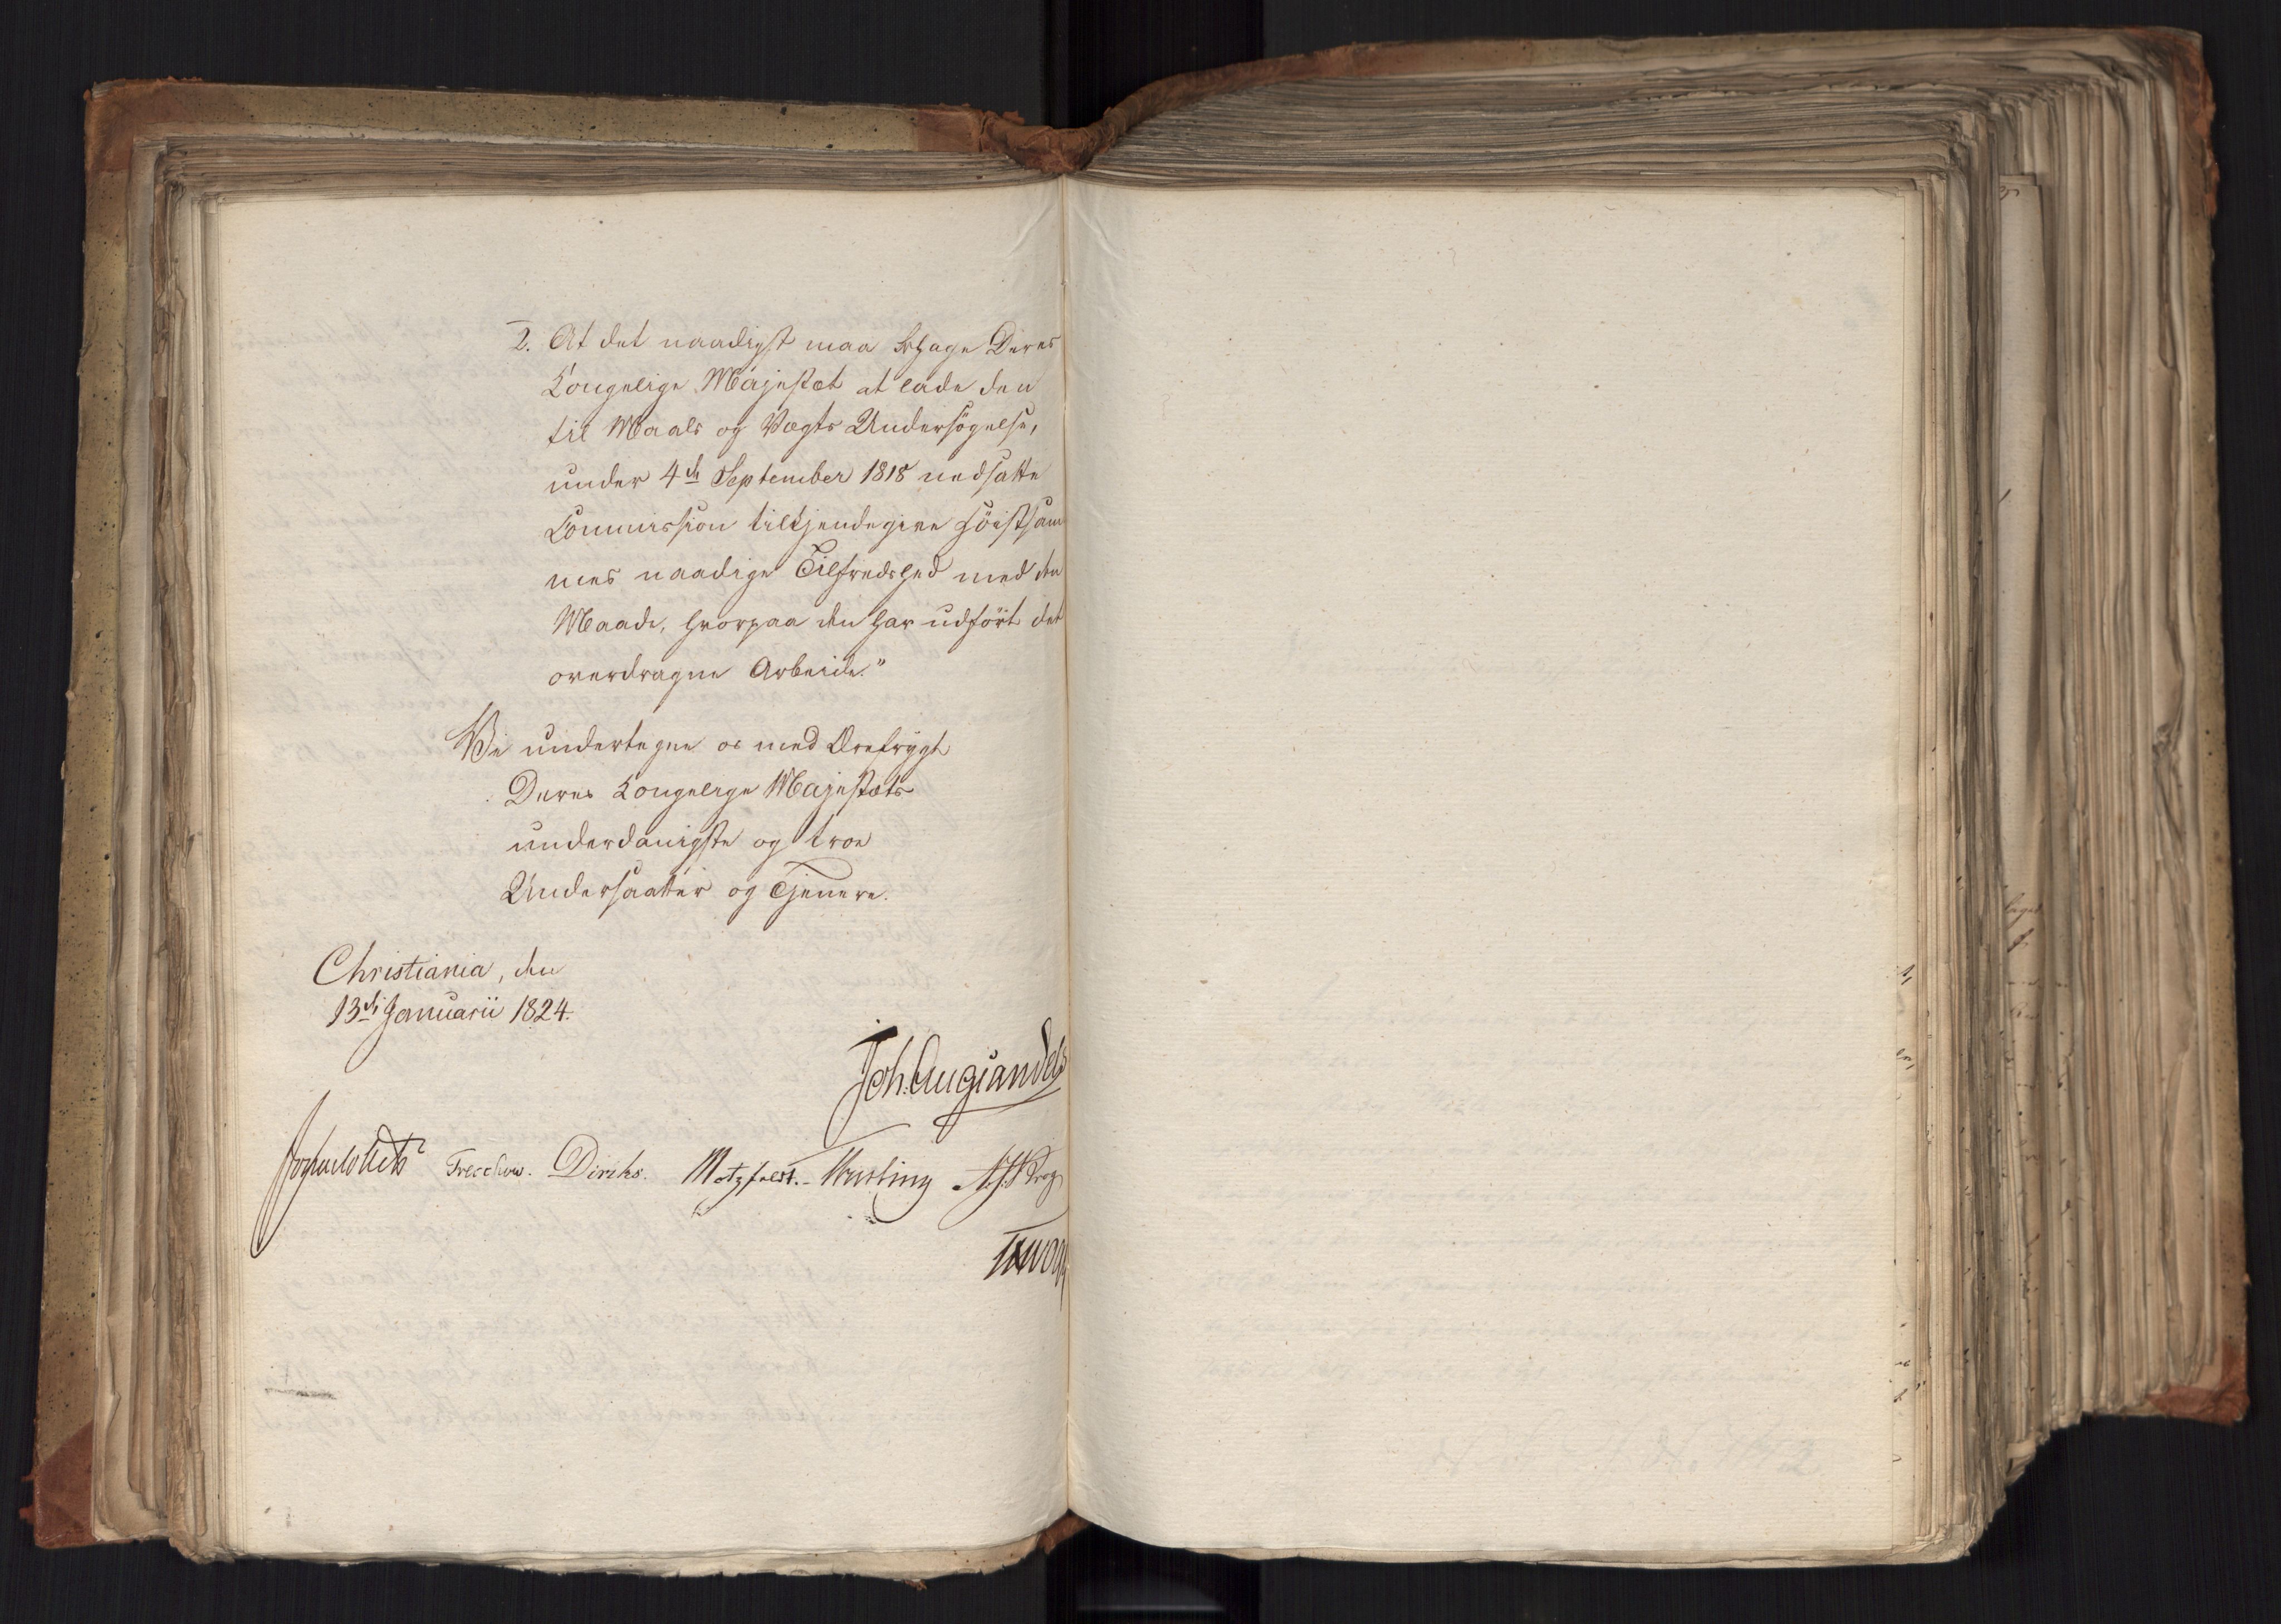 2. At det naadigst maa behage Deres
Kongelige Majestæt at lade den
til Maals og Vægts Undersögelse,
under 4de September 1818 nedsatte
Commission tilkjendegive Höistsam
mes naadige Tilfredshed med den
Maade, hvorpaa den har udfört det
overdragne Arbeide."
Vi undertegne os med Ærefrygt
Deres Kongelige Majestæts
underdanigste og troe
Undersaatter og Tjenere.
Christiania, den
13de Januarii 1824.
Joh: Aug: Sandels
Jonas Collett
Treschow. Diriks. Motzfeldt. - Hersleb